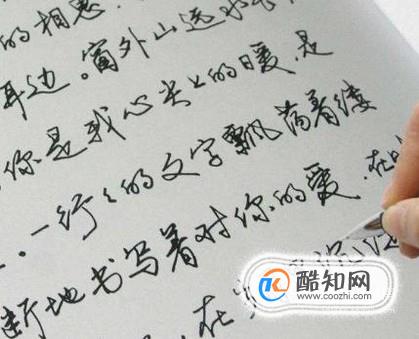 的相思
耳边。窗外山远水
你是我心尖上的暖,是
一行々的文字飘荡着缕
断地书写着对你的爱.在
在
酷知网
www.coozhi.com